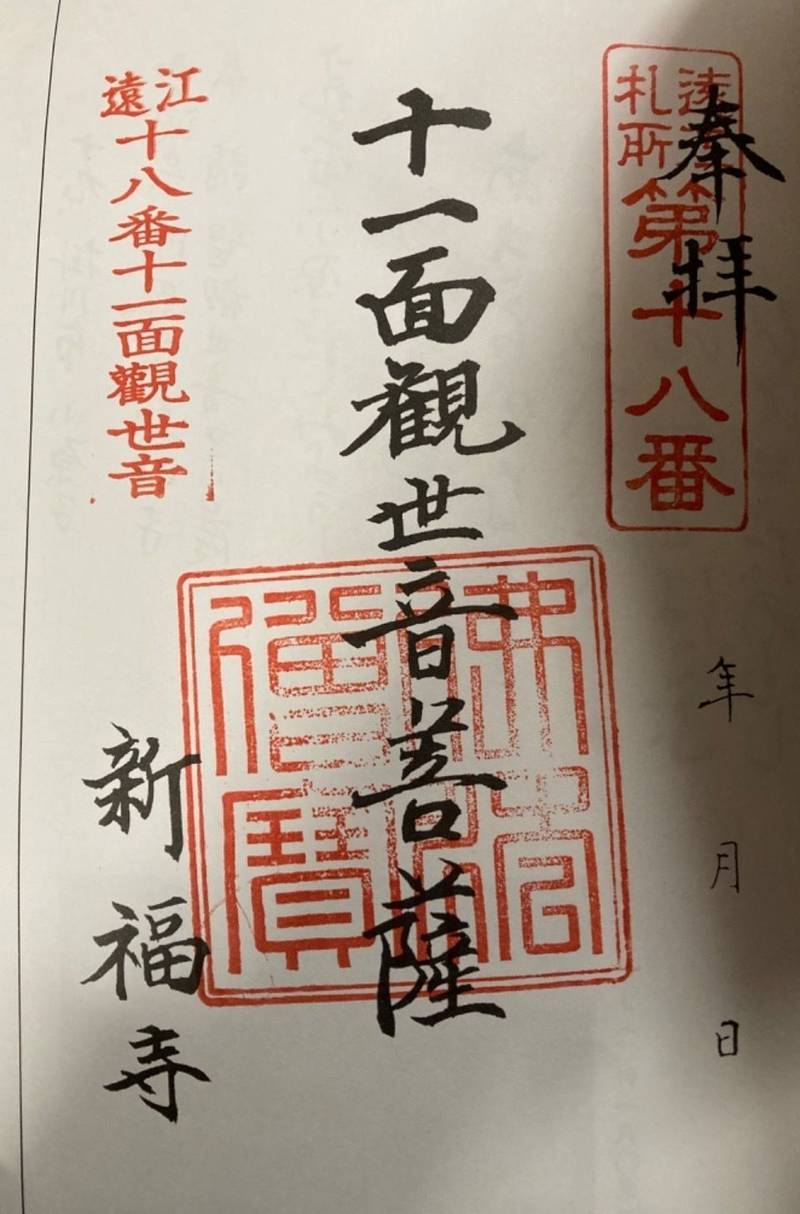 奉拝
遠
札所
第十八番
年 月 日
十一面観世音菩薩
僧寶
遠江
十八番十一面觀世音
新福寺